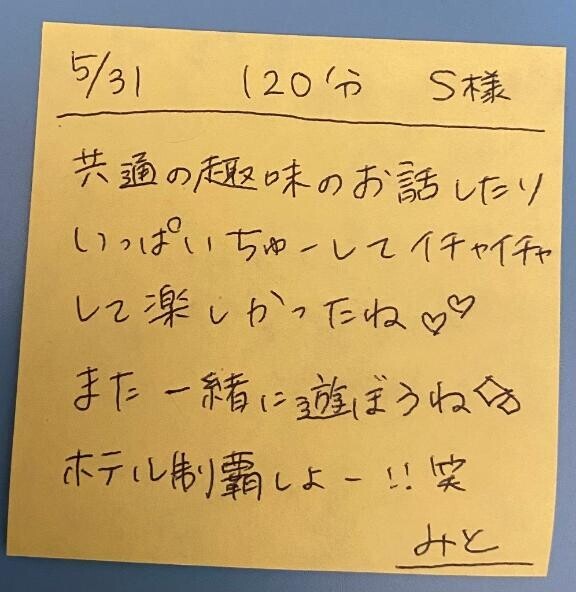 5/31 120分 S様
共通の趣味のお話したり
いっぱいちゅーしてイチャイチャ
して楽しかったね♡♡
また一緒に遊ぼうね
ホテル制覇しよー!!笑
みと